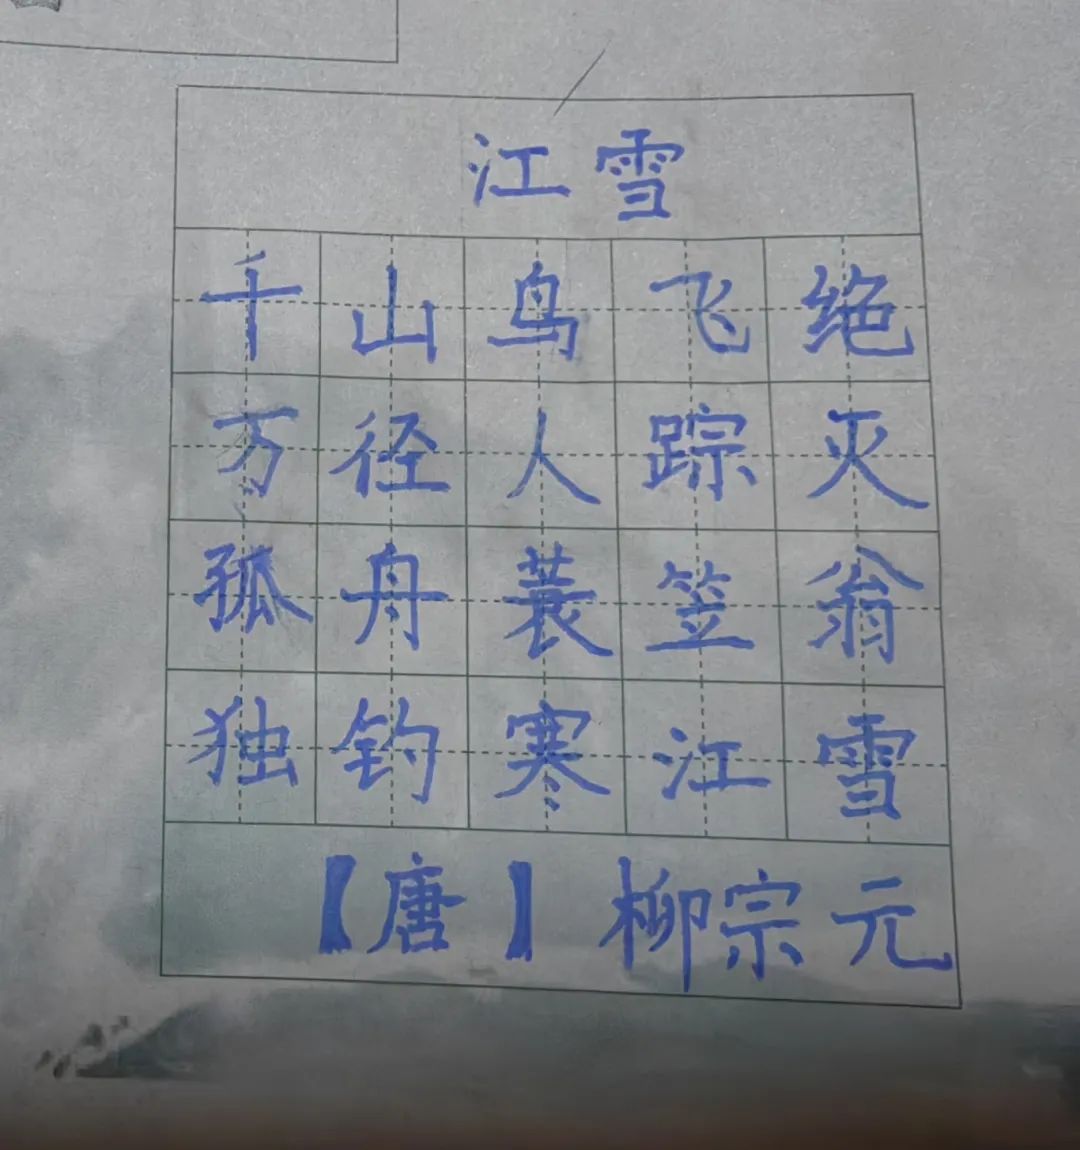 江雪
千山鸟飞绝
万径人踪灭
孤舟蓑笠翁
独钓寒江雪
【唐】柳宗元